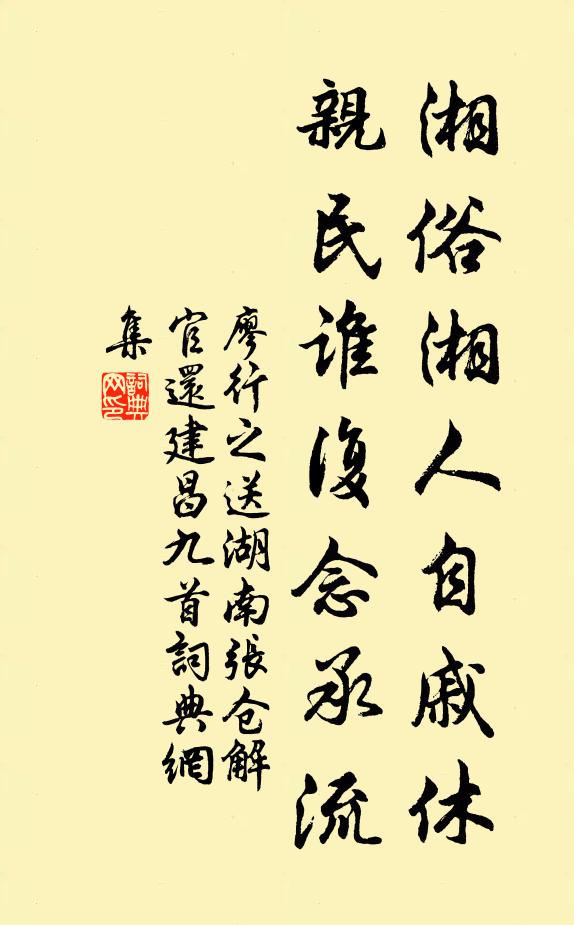 湘俗湘人自戚休
親民誰復念承流
廖行之送湖南張仓解
官還建昌九首詞典網
集
詞典网印